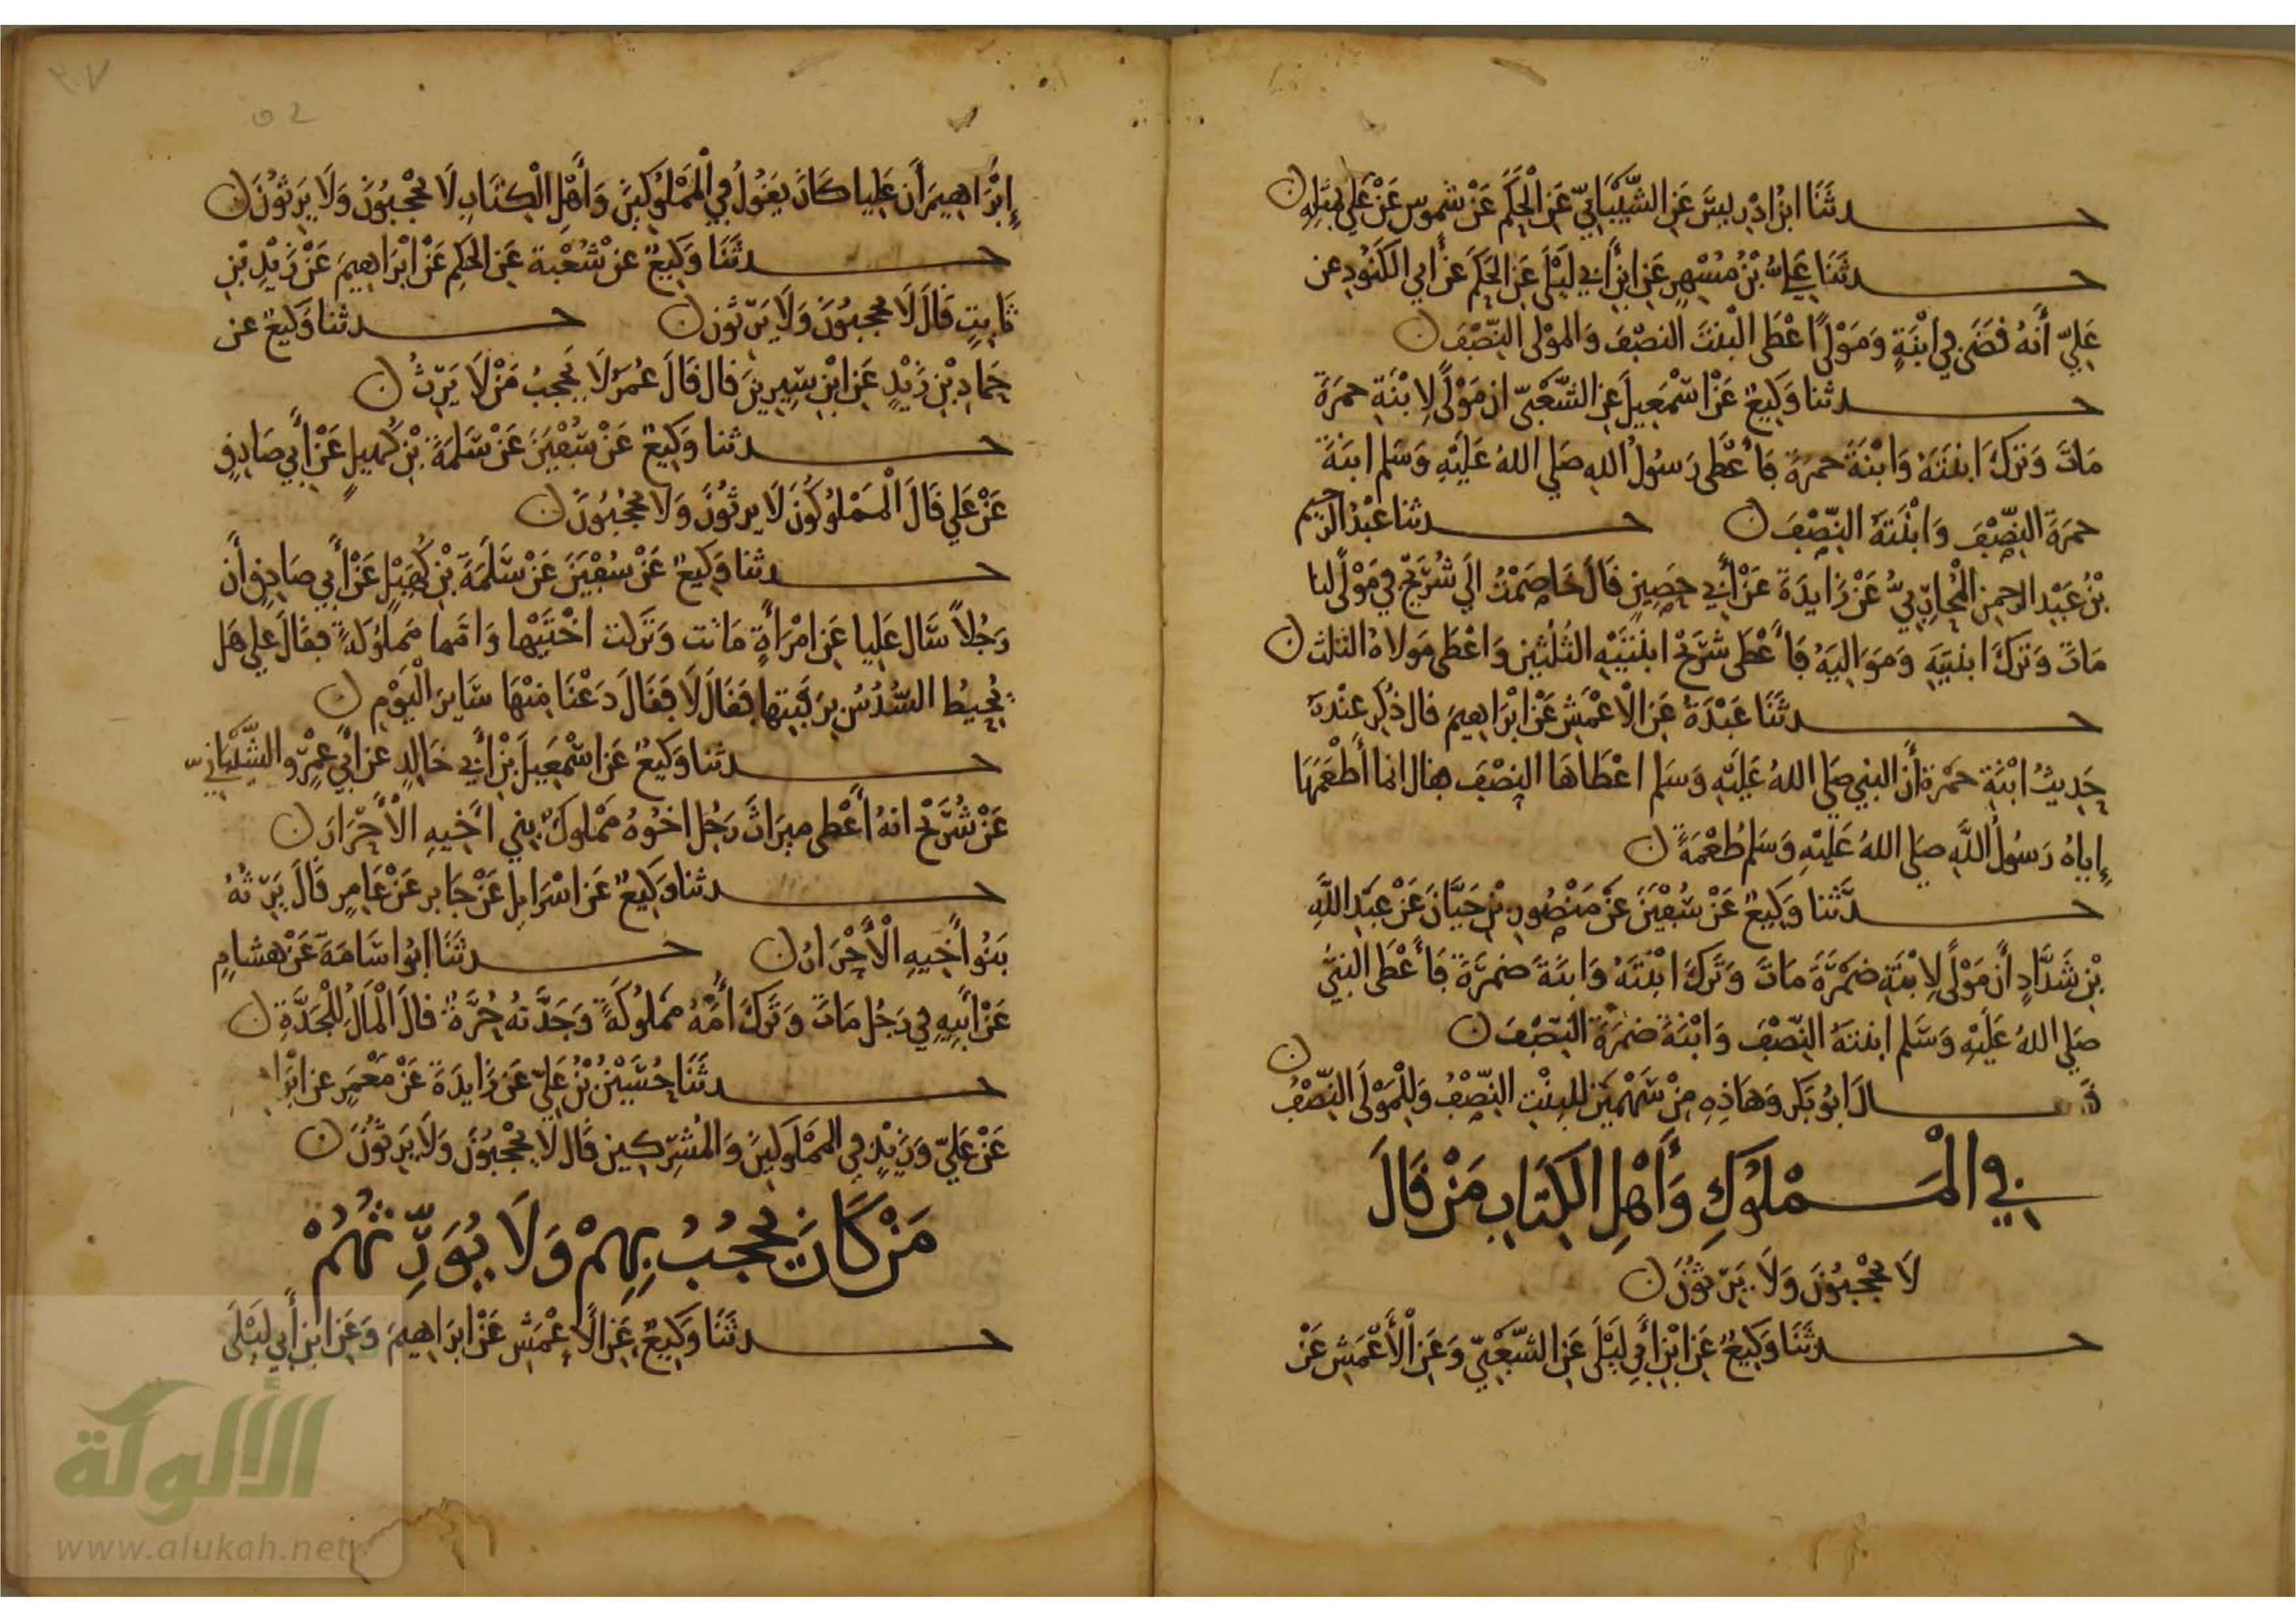 حدثنا ابن ادريس عن الشيباني عن الحكم عن شموس عن علي بمثله
حدثنا علي بن مسهر عن ابن أبي ليلى عن الحكم عن أبي الكنود عن
علي أنه قضى في ابنة ومولى اعطى البنت النصف والمولى النصف
حدثنا وكيع عن اسمعيل عن الشعبي ان مولى لابنة حمزة
مات وترك ابنته وابنة حمزة فأعطى رسول الله صلى الله عليه وسلم ابنة
حمزة النصف وابنته النصف حدثنا عبد الرحيم
بن عبد الرحمن المحاربي عن زايدة عن أبي حصين قال خاصمت الى شريح في مولى لنا
مات وترك ابنتيه ومواليه فأعطى شريح ابنتيه الثلثين واعطى مولاه الثلث
حدثنا عبدة عن الاعمش عن ابراهيم قال ذكر عنده
حديث ابنة حمزة أن النبي صلى الله عليه وسلم اعطاها النصف فقال انما أطعمها
إياه رسول الله صلى الله عليه وسلم طعمة
حدثنا وكيع عن سفين عن منصور بن حيان عن عبد الله
بن شداد أن مولى لابنة ضمرة مات وترك ابنته وابنة ضمرة فأعطى النبي
صلى الله عليه وسلم ابنته النصف وابنة ضمرة النصف
قال ابو بكر وهاذه من سهمين للبنت النصف وللمولى النصف
في المملوك وأهل الكتاب من قال
لا يحجبون ولا يرثون
حدثنا وكيع عن ابن أبي ليلى عن الشعبي وعن الأعمش عن
إبراهيم أن عليا كان يقول في المملوكين وأهل الكتاب لا يحجبون ولا يرثون
حدثنا وكيع عن شعبة عن الحكم عن ابراهيم عن زيد بن
ثابت قال لا يحجبون ولا يرثون حدثنا وكيع عن
حماد بن زيد عن ابن سيرين قال قال عمر لا يحجب من لا يرث
حدثنا وكيع عن سفين عن سلمة بن كهيل عن أبي صادق
عن علي قال المملوكون لا يرثون ولا يحجبون
حدثنا وكيع عن سفين عن سلمة بن كهيل عن أبي صادق أن
رجلا سال عليا عن امرأة ماتت وتركت اختيها وامها مملوكة فقال علي هل
يحيط السدس برقبتها فقال لا فقال دعنا منها ساير اليوم
حدثنا وكيع عن اسمعيل بن أبي خالد عن أبي عمرو الشيباني
عن شريح انه أعطى ميراث رجل اخوه مملوك بني أخيه الأحرار
حدثنا وكيع عن اسرايل عن جابر عن عامر قال يرثه
بنو أخيه الأحرار حدثنا ابو اسامة عن هشام
عن أبيه في رجل مات وترك أمه مملوكة وجدته حرة قال المال للجدة
حدثنا حسين بن علي عن زايدة عن معمر عن ابرا
عن علي وزيد في المملوكين والمشركين قال لا يحجبون ولا يرثون
من كان يحجب بهم ولا يورثهم
حدثنا وكيع عن الأعمش عن ابراهيم وعن ابن أبي ليلى
الألوكة
www.alukah.net